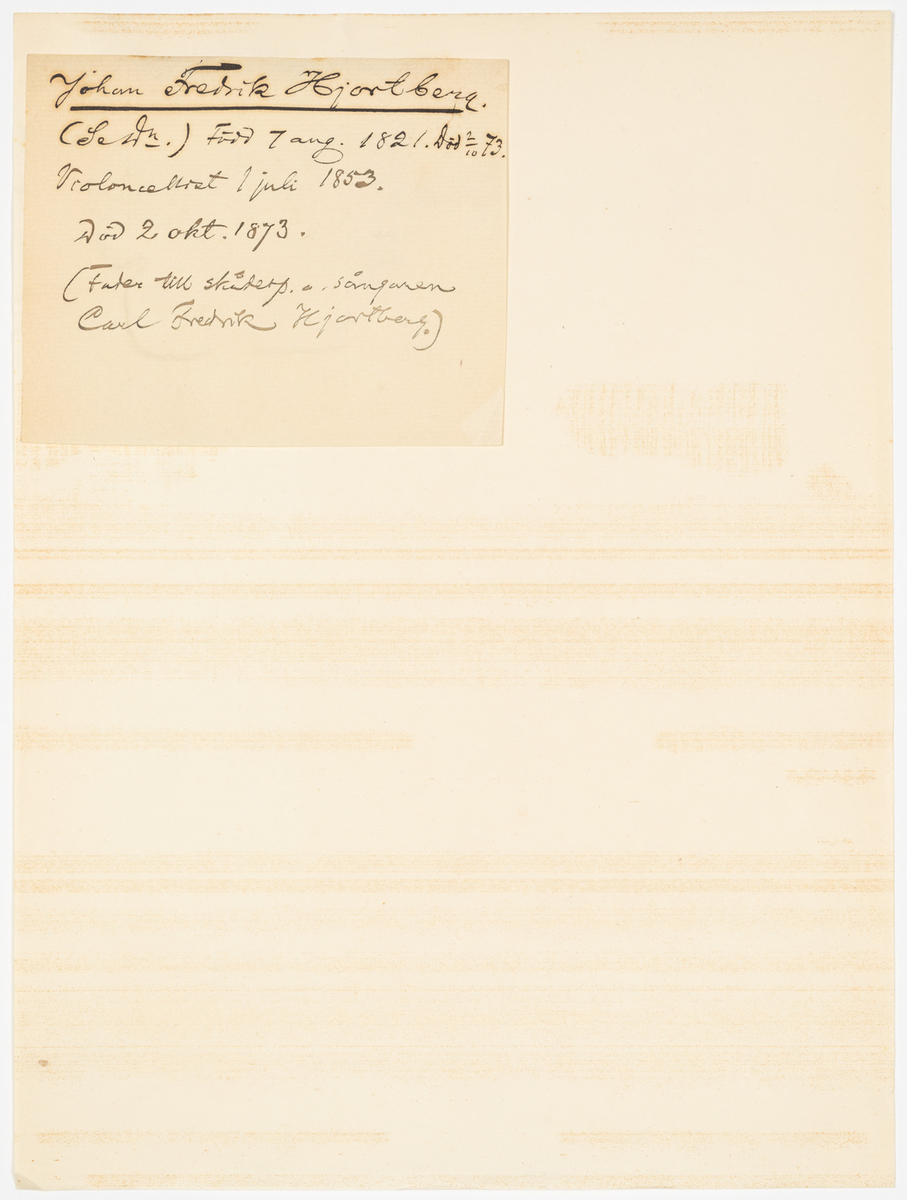 Johan Fredrik Hjortberg.
(Se dn.) Född 7 aug. 1821. Död 2/10 73.
Violoncellist 1 juli 1853.
Död 2 okt. 1873.
(Fader till skådesp. o. sångaren
Carl Fredrik Hjortberg.)